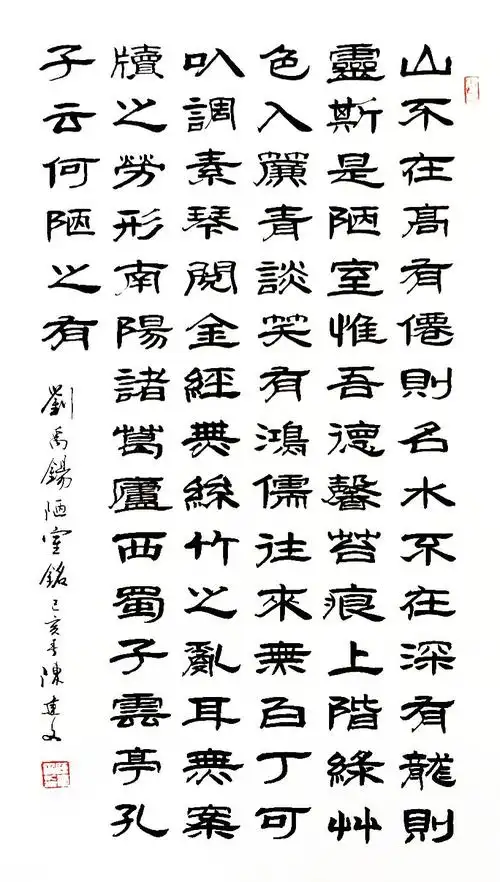 山不在高有僊則名水不在深有龍則
靈斯是陋室惟吾德馨苔痕上階綠艸
色入簾青談笑有鴻儒往來無白丁可
㕥調素琴閱金經無絲竹之亂耳無案
牘之勞形南陽諸葛廬西蜀子雲亭孔
子云何陋之有
劉禹錫陋室銘己亥年陳建文